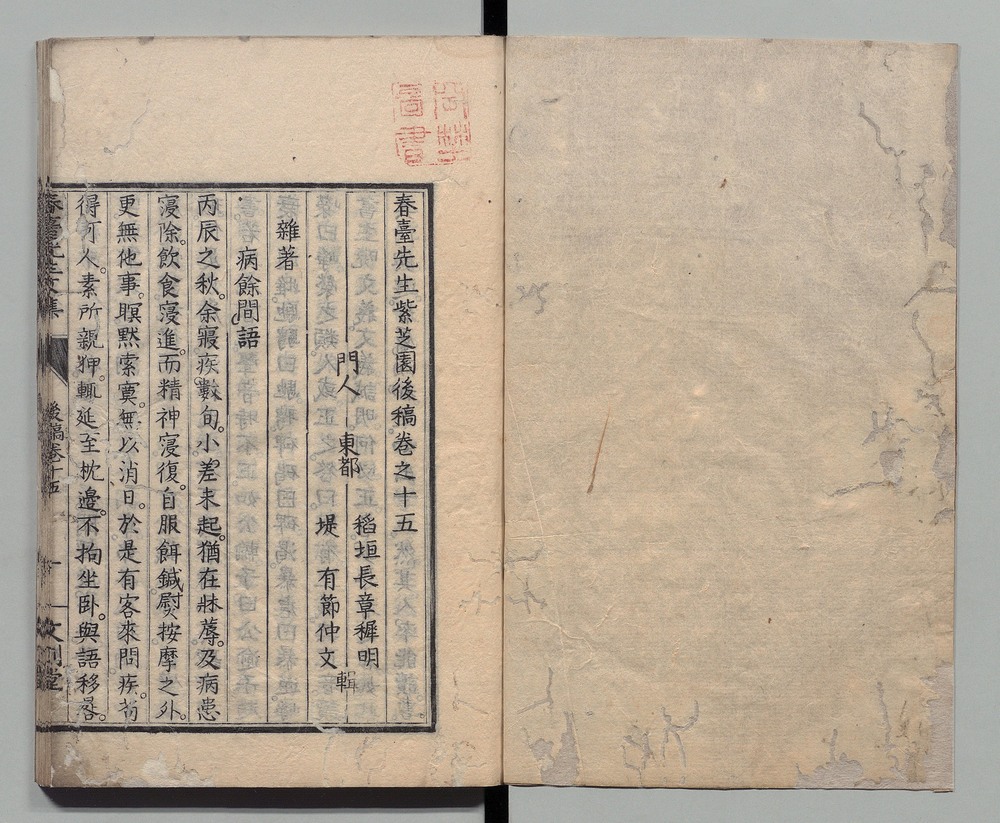 春臺先生紫芝園後稿卷之十五
門人 東都 稻垣長章稺明
堤 有節仲文 輯
雜著
病餘間語
丙辰之秋。余寢疾數旬。小差未起。猶在牀蓐。及病患
寖除。飲食寖進。而精神寖復。自服餌鍼熨按摩之外。
更無他事。瞑默索寞。無以消日。於是有客來問疾。苟
得可人。素所親狎。輒延至枕邊。不拘坐卧。與語移晷。
後稿卷十五
一